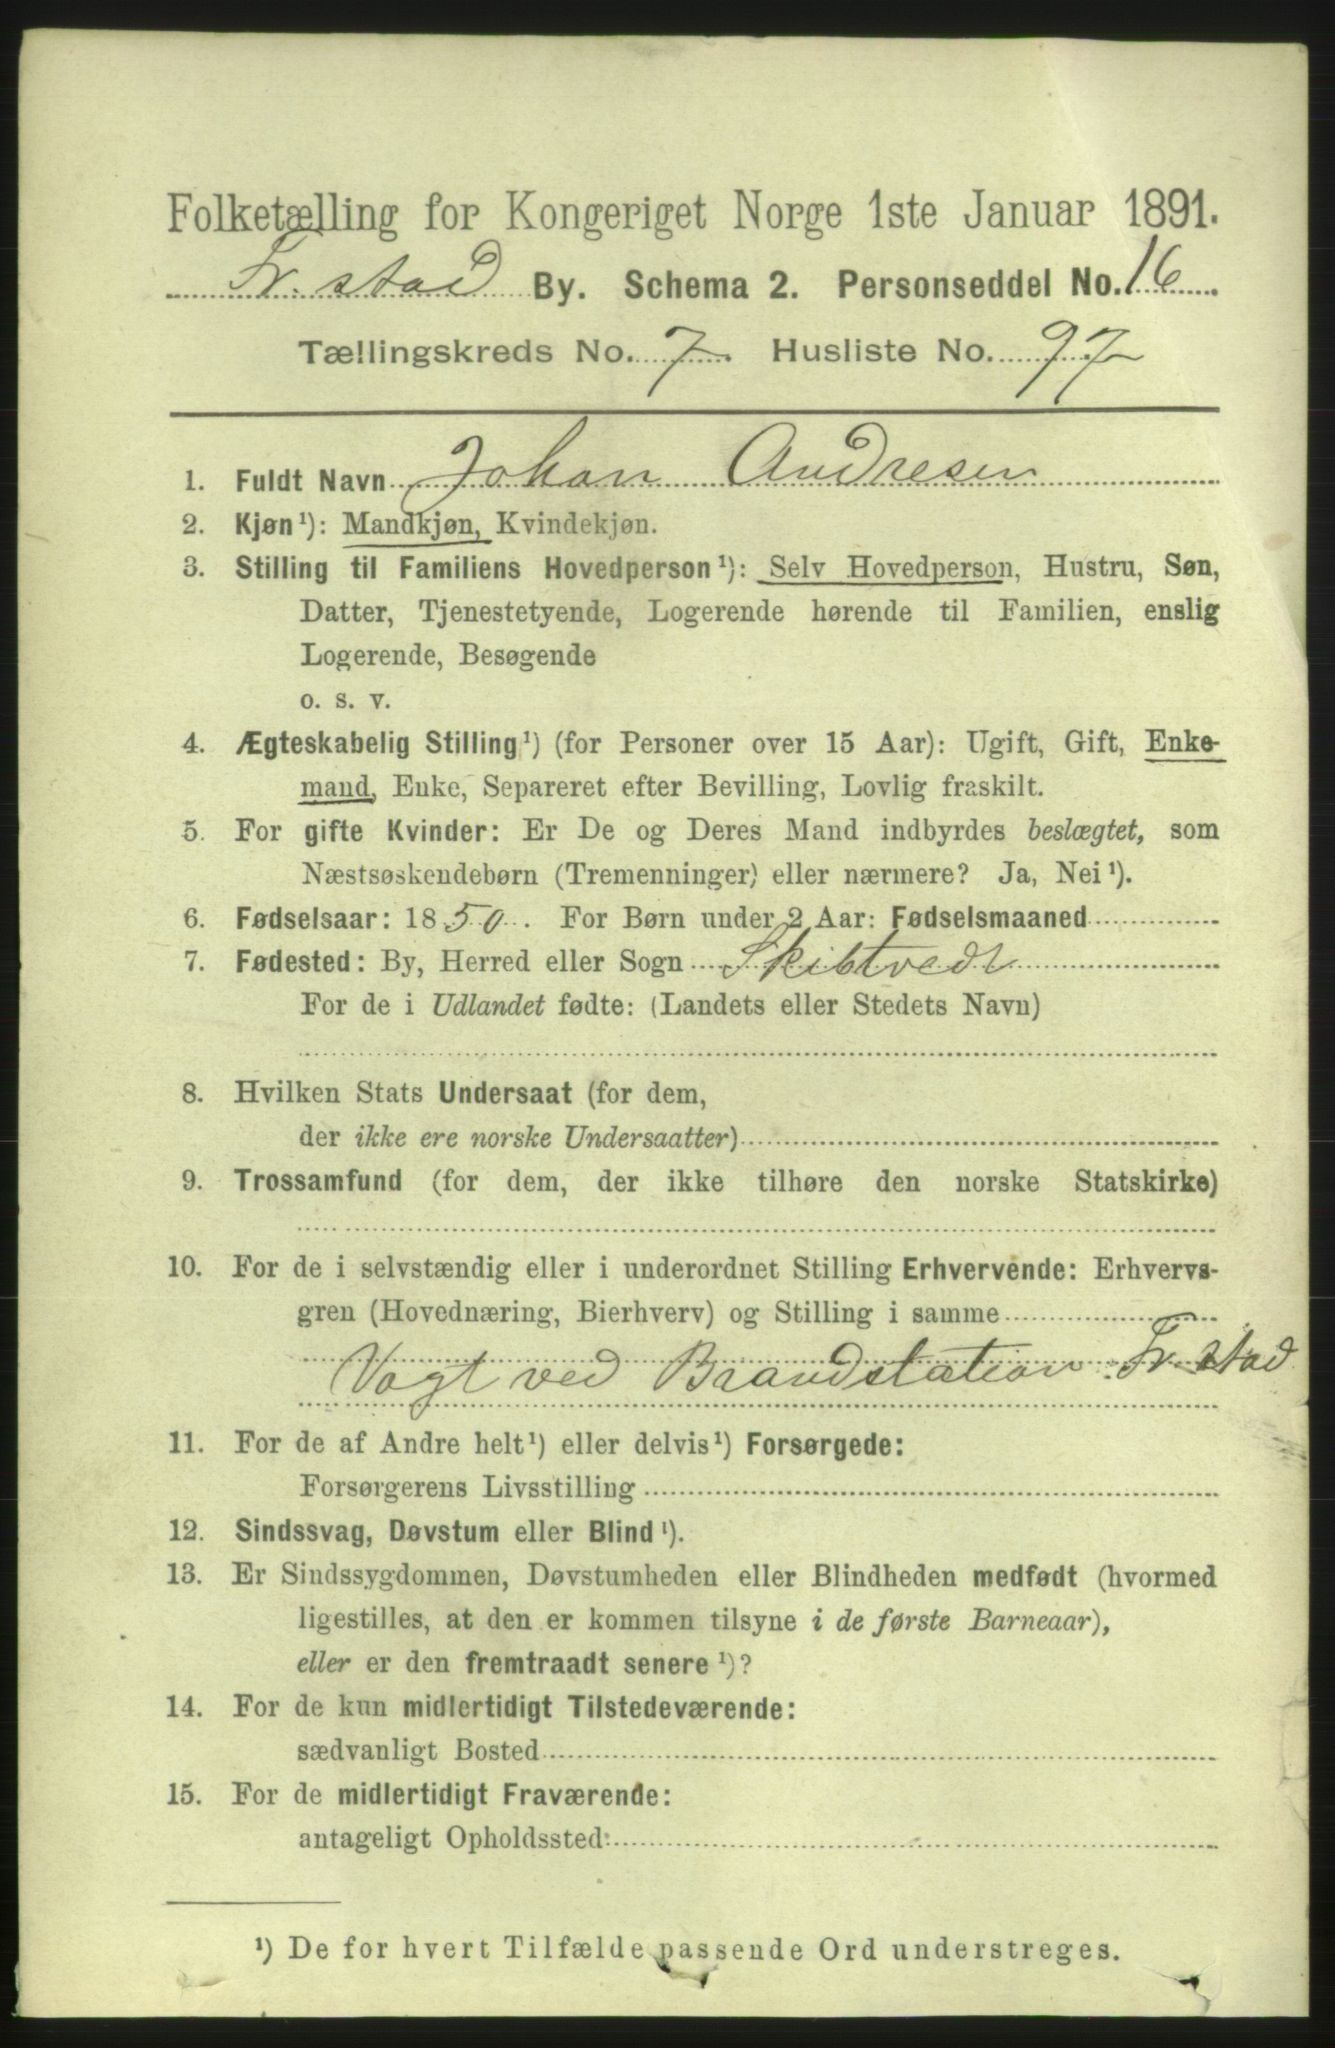 Folketælling for Kongeriget Norge 1ste Januar 1891.
Fr. stad By. Schema 2. Personseddel No. 16
Tællingskreds No. 7 Husliste No. 97
1. Fuldt Navn Johan Andresen
2. Kjøn¹): Mandkjøn, Kvindekjøn.
3. Stilling til Familiens Hovedperson¹): Selv Hovedperson, Hustru, Søn,
Datter, Tjenestetyende, Logerende hørende til Familien, enslig
Logerende, Besøgende
o. s. v.
4. Ægteskabelig Stilling¹) (for Personer over 15 Aar): Ugift, Gift, Enke-
mand, Enke, Separeret efter Bevilling, Lovlig fraskilt.
5. For gifte Kvinder: Er De og Deres Mand indbyrdes beslægtet, som
Næstsøskendebørn (Tremenninger) eller nærmere? Ja, Nei¹).
6. Fødselsaar: 1850. For Børn under 2 Aar: Fødselsmaaned
7. Fødested: By, Herred eller Sogn Skibtvedt
For de i Udlandet fødte: (Landets eller Stedets Navn)
8. Hvilken Stats Undersaat (for dem,
der ikke ere norske Undersaatter)
9. Trossamfund (for dem, der ikke tilhøre den norske Statskirke)
10. For de i selvstændig eller i underordnet Stilling Erhvervende: Erhvervs-
gren (Hovednæring, Bierhverv) og Stilling i samme
Vogt ved Brandstation Fr. stad
11. For de af Andre helt¹) eller delvis¹) Forsørgede:
Forsørgerens Livsstilling
12. Sindssvag, Døvstum eller Blind¹).
13. Er Sindssygdommen, Døvstumheden eller Blindheden medfødt (hvormed
ligestilles, at den er kommen tilsyne i de første Barneaar),
eller er den fremtraadt senere¹)?
14. For de kun midlertidigt Tilstedeværende:
sædvanligt Bosted
15. For de midlertidigt Fraværende:
antageligt Opholdssted
¹) De for hvert Tilfælde passende Ord understreges.